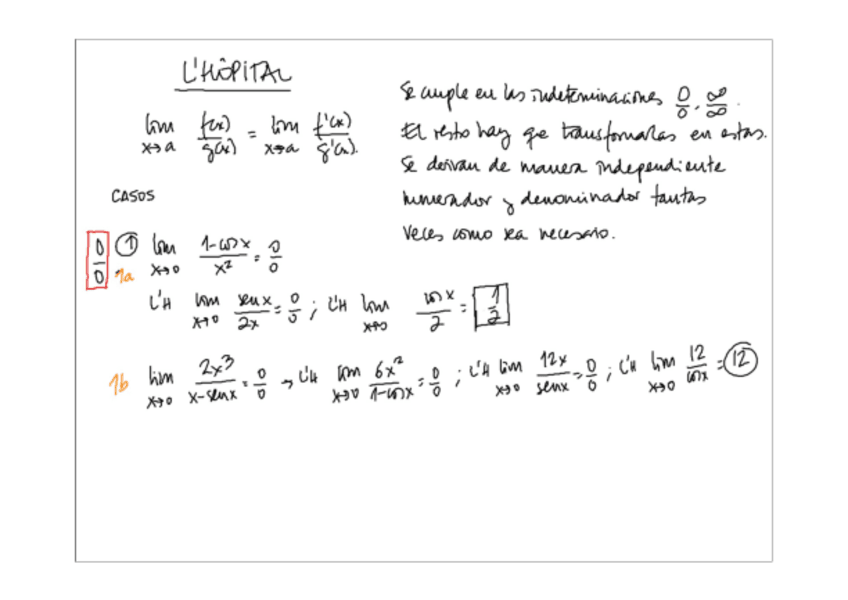 L'HÔPITAL
lim x→a f(x)/g(x) = lim x→a f'(x)/g'(x).
Se cumple en las indeterminaciones 0/0, ∞/∞.
El resto hay que transformarlas en estas.
Se derivan de manera independiente
numerador y denominador tantas
veces como sea necesario.
CASOS
0/0 ① lim x→0 1-cosx/x² = 0/0
1a
L'H lim x→0 senx/2x = 0/0 ; L'H lim x→0 cosx/2 = 1/2
1b lim x→0 2x³/x-senx = 0/0 → L'H lim x→0 6x²/1-cosx = 0/0 ; L'H lim x→0 12x/senx = 0/0 ; L'H lim x→0 12/cosx = 12